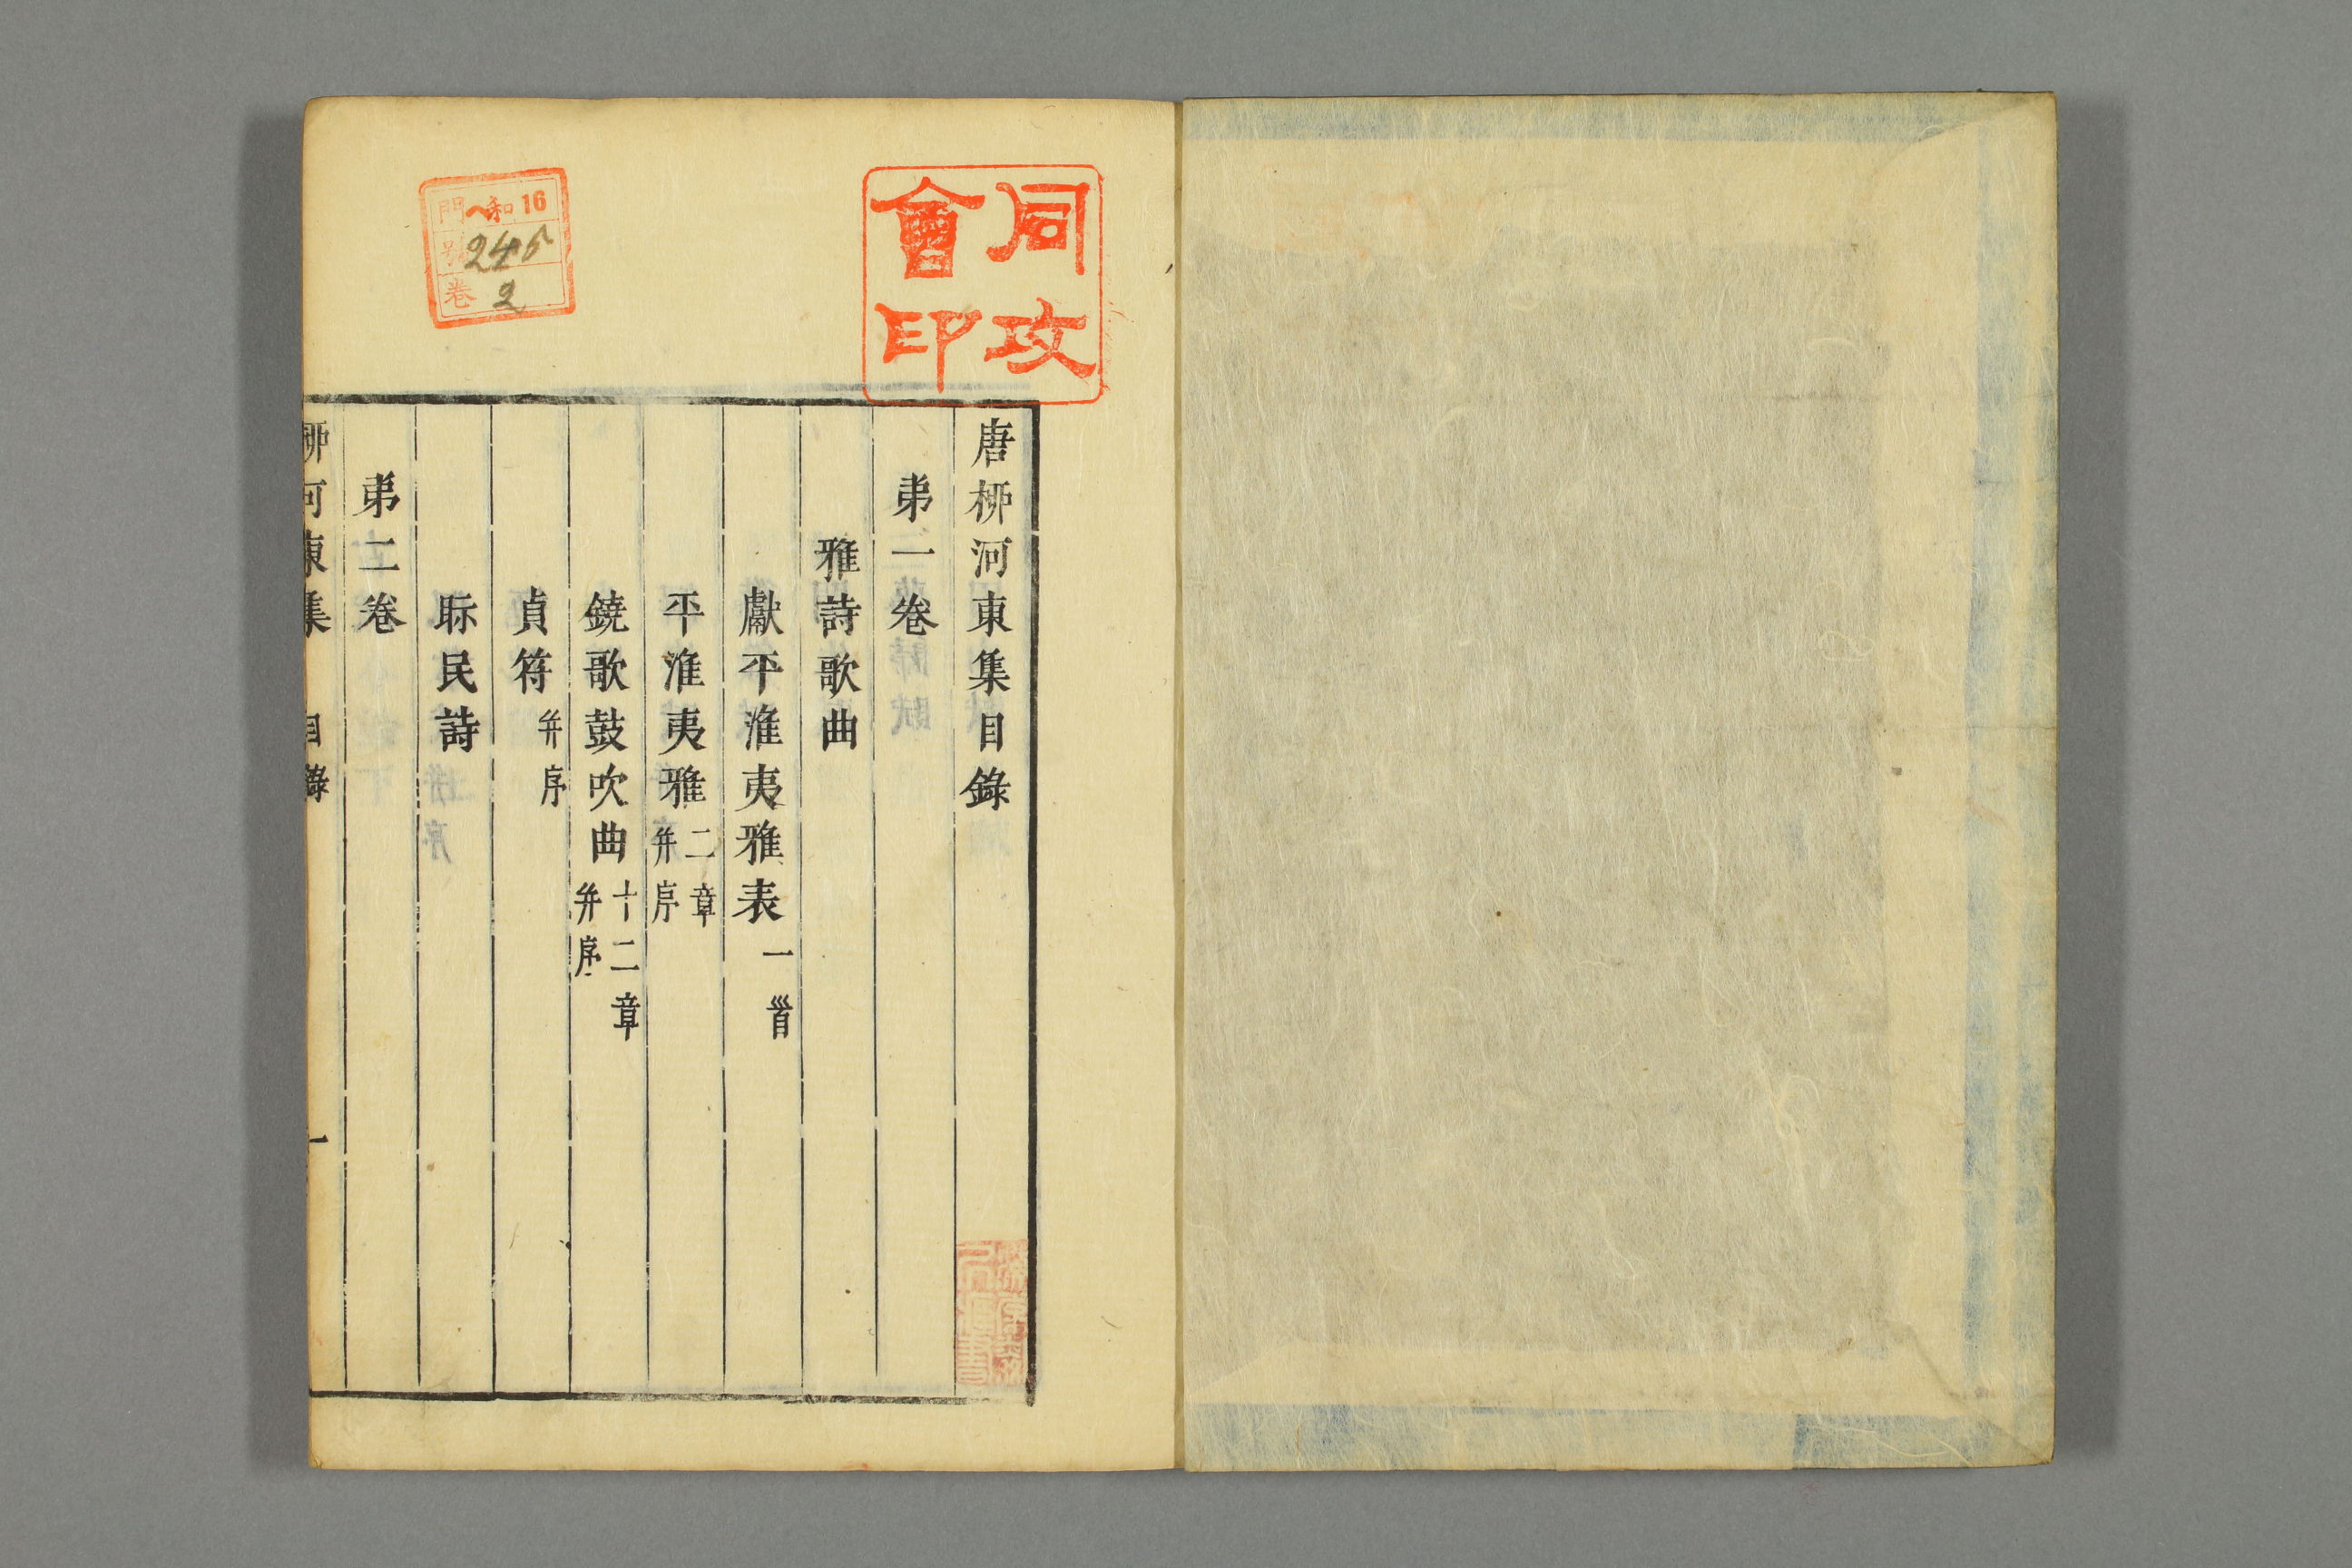 同攻
會印
唐柳河東集目錄
弟一卷
雅詩歌曲
獻平淮夷雅表一首
平淮夷雅二章并序
鐃歌鼓吹曲十二章并序
貞符并序
眎民詩
弟二卷
柳河東集 目錄 一
門 ヘ和16
号 245
卷 2